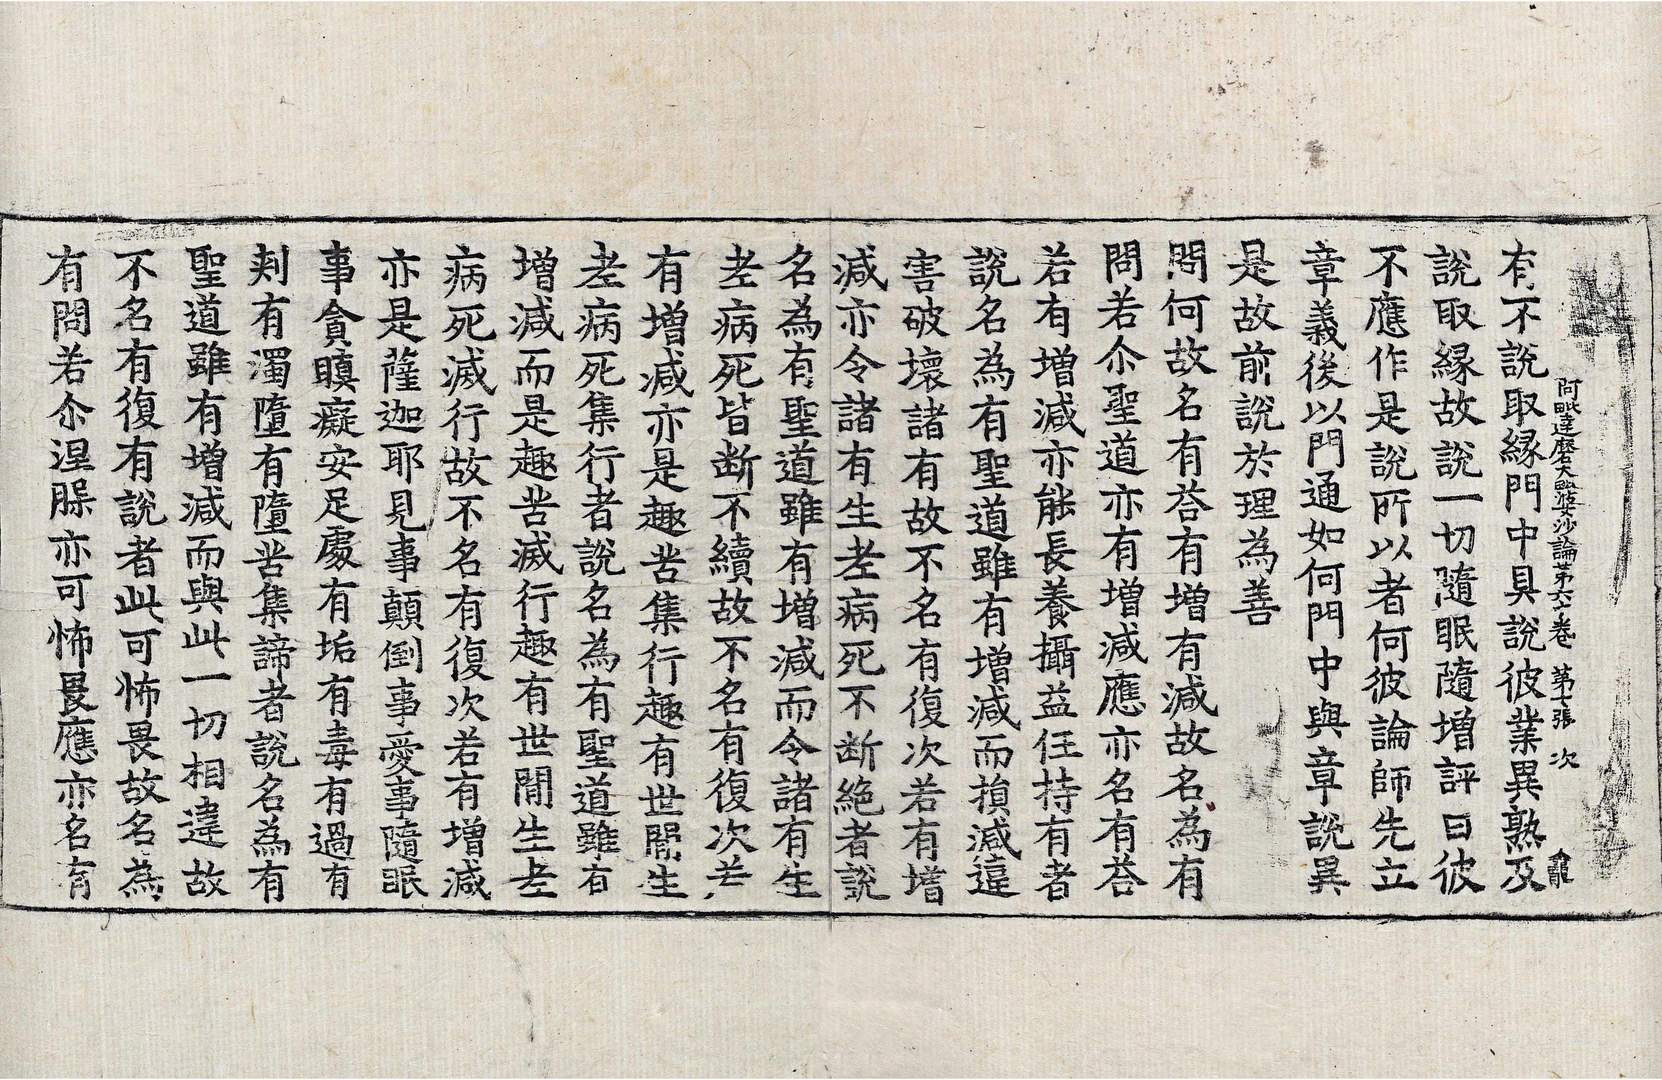 有不說取縁門中具說彼業異熟及
阿毗達磨大毗婆沙論第六十卷 第十張 次
說取縁故說一切隨眠隨増評曰彼
不應作是說所以者何彼論師先立
章義後以門通如何門中與章說異
是故前說於理為善
問何故名有荅有増有減故名為有
問若尒聖道亦有増減應亦名有荅
若有増減亦能長養攝益任持有者
說名為有聖道雖有増減而損減違
害破壞諸有故不名有復次若有増
減亦令諸有生老病死不断絶者說
名為有聖道雖有増減而令諸有生
老病死皆断不續故不名有復次若
有増減亦是趣苦集行趣有世間生
老病死集行者說名為有聖道雖有
増減而是趣苦滅行趣有世間生老
病死滅行故不名有復次若有増減
亦是薩迦耶見事顛倒事愛事隨眠
事貪瞋癡安足處有垢有毒有過有
刺有濁墮有墮苦集諦者說名為有
聖道雖有増減而與此一切相違故
不名有復有說者此可怖畏故名為
有問若尒涅槃亦可怖畏應亦名有